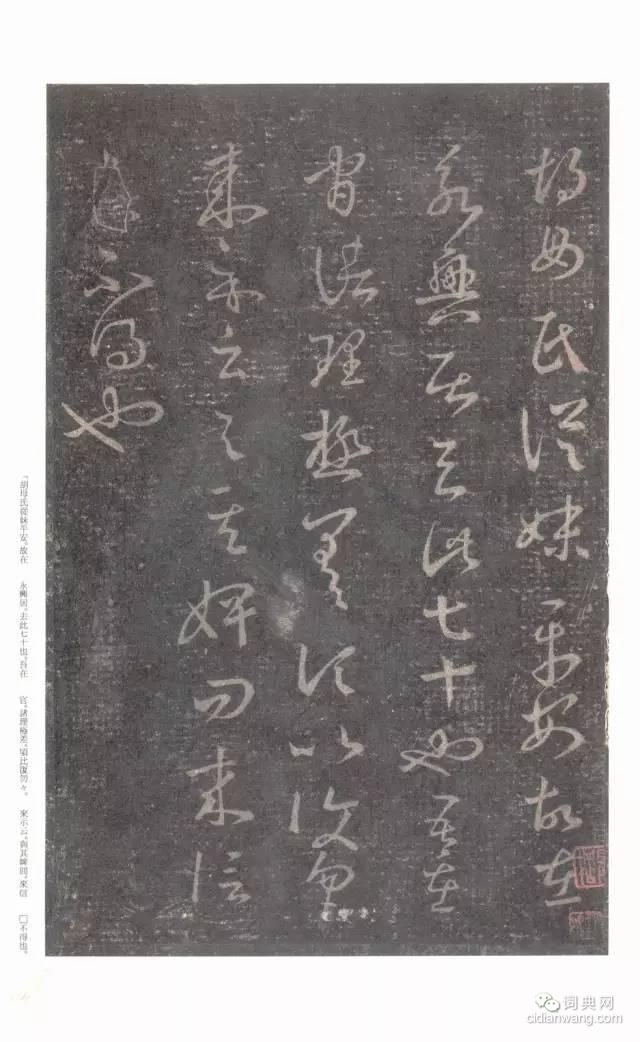 胡母氏從妹平安故在
永興居去此七十也吾在
官諸理極差頃比復勿
來示云與其婢問來信
不得也
「胡母氏從妹平安。故在 永興居。去此七十也。吾在 官。諸理極差。頃比復勿々。 來示云。與其婢問。來信 □不得也。
词典网
cidianwang.com